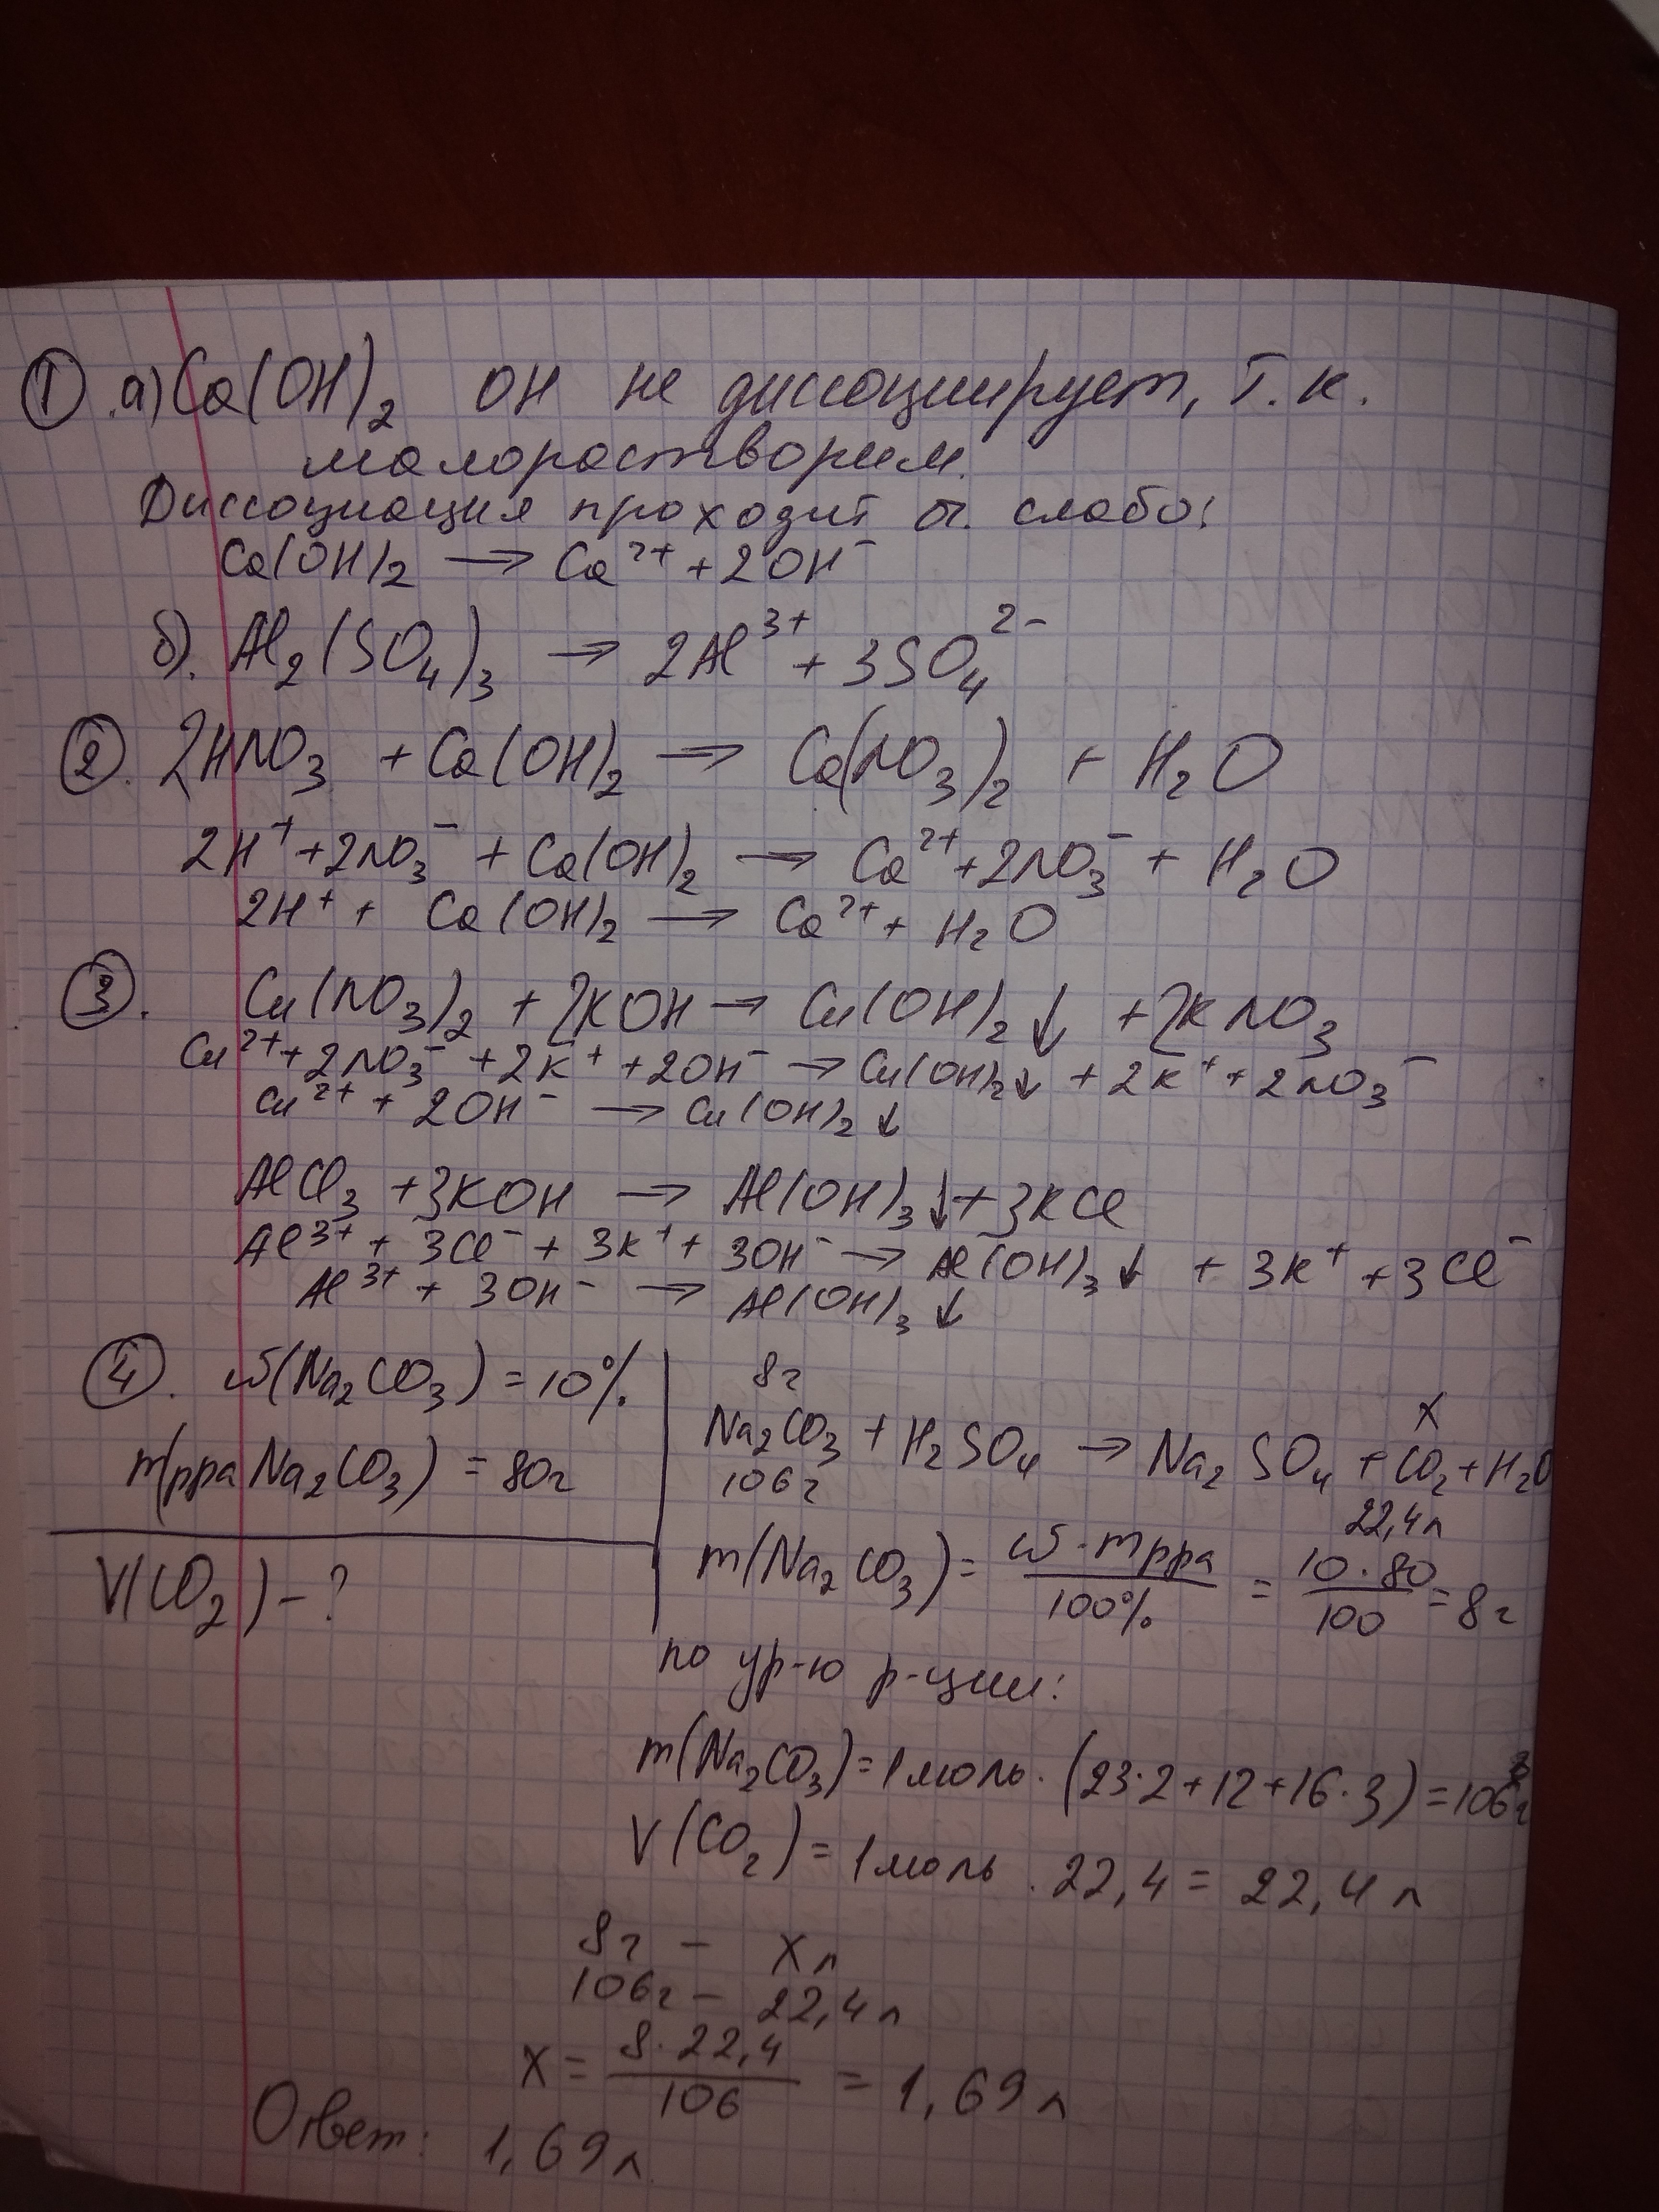 ① а) Ca(OH)₂ OH не диссоциирует, т.к.
малорастворим.
Диссоциация проходит о. слабо:
Ca(OH)₂ → Ca²⁺ + 2OH⁻
б). Al₂(SO₄)₃ → 2Al³⁺ + 3SO₄²⁻
②. 2HNO₃ + Ca(OH)₂ → Ca(NO₃)₂ + H₂O
2H⁺ + 2NO₃⁻ + Ca(OH)₂ → Ca²⁺ + 2NO₃⁻ + H₂O
2H⁺ + Ca(OH)₂ → Ca²⁺ + H₂O
③. Cu(NO₃)₂ + 2KOH → Cu(OH)₂↓ + 2KNO₃
Cu²⁺ + 2NO₃⁻ + 2K⁺ + 2OH⁻ → Cu(OH)₂↓ + 2K⁺ + 2NO₃⁻
Cu²⁺ + 2OH⁻ → Cu(OH)₂↓
AlCl₃ + 3KOH → Al(OH)₃↓ + 3KCl
Al³⁺ + 3Cl⁻ + 3K⁺ + 3OH⁻ → Al(OH)₃↓ + 3K⁺ + 3Cl⁻
Al³⁺ + 3OH⁻ → Al(OH)₃↓
④. ω(Na₂CO₃) = 10%
m(рра Na₂CO₃) = 80г
V(CO₂) - ?
8г x
Na₂CO₃ + H₂SO₄ → Na₂SO₄ + CO₂ + H₂O
106г 22,4л
m(Na₂CO₃) = ω · mрра / 100% = 10 · 80 / 100 = 8г
по ур-ю р-ции:
m(Na₂CO₃) = 1моль · (23·2 + 12 + 16·3) = 106г
V(CO₂) = 1моль · 22,4 = 22,4л
8г - Xл
106г - 22,4л
X = 8·22,4 / 106 = 1,69л
Ответ: 1,69л